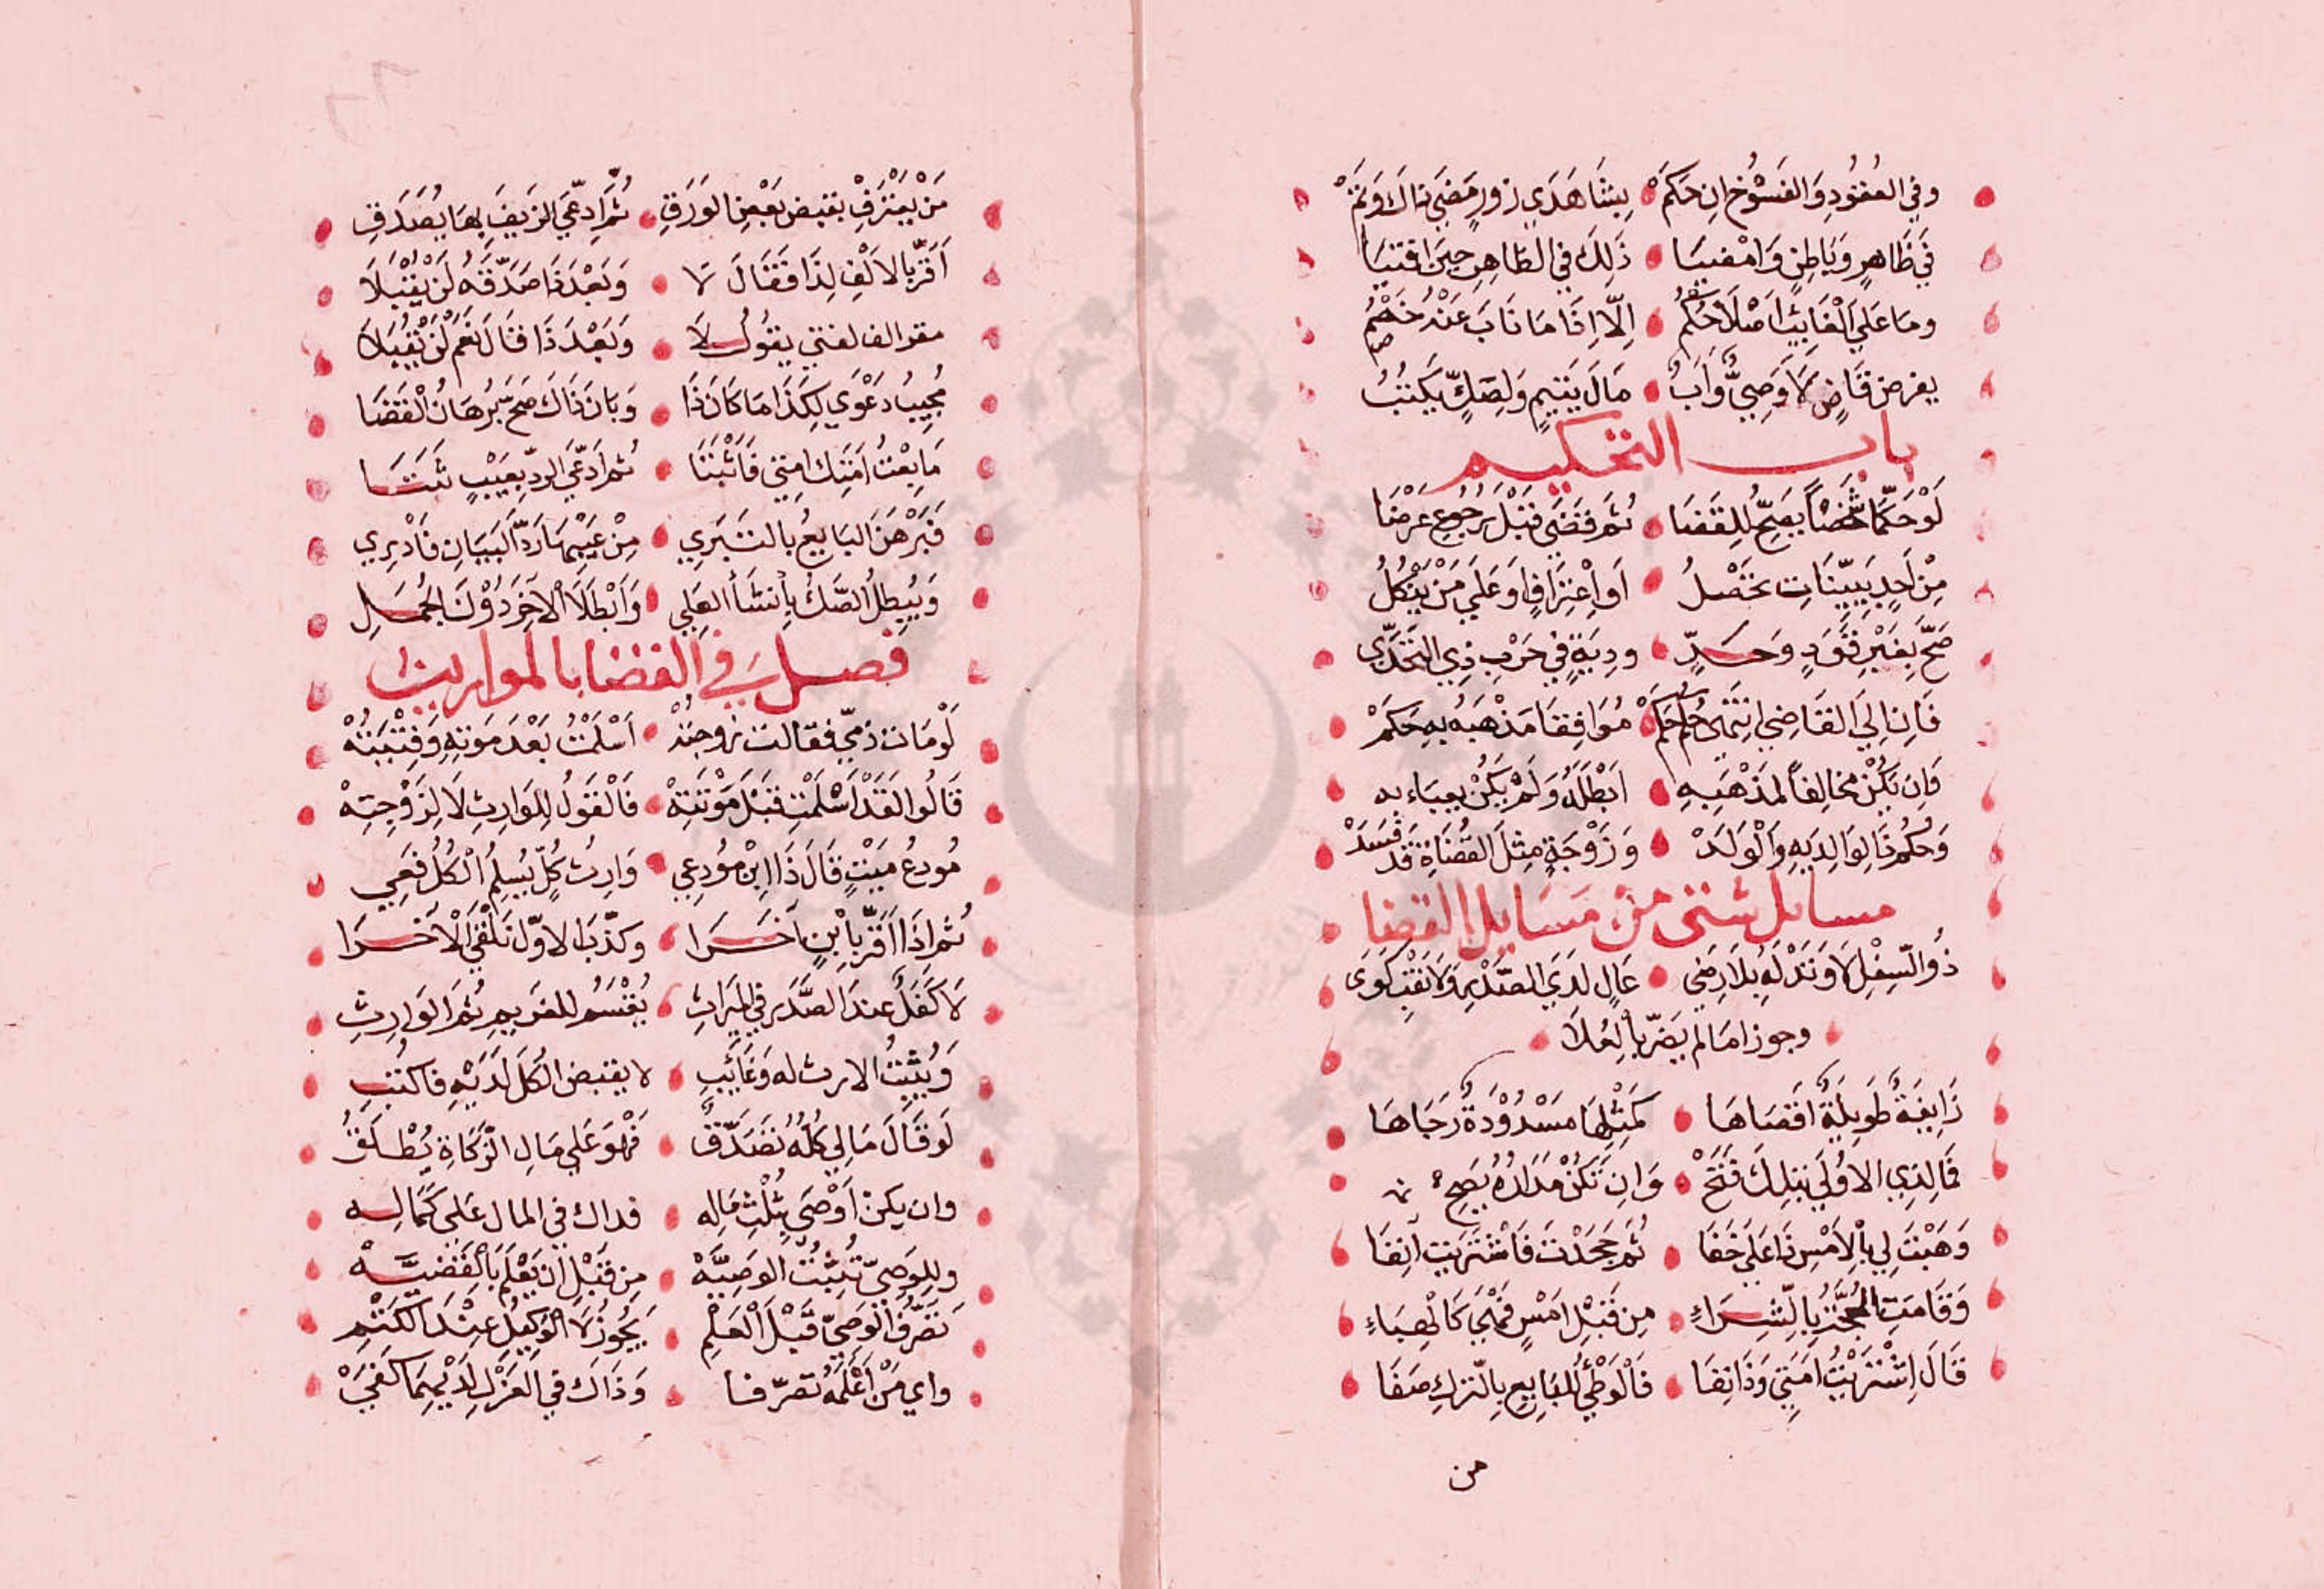 وفي العقود والفسوخ ان حكم بشاهدي زور مضى ذاك وتم
في ظاهر وباطن وامضيا ذلك في الظاهر حين اقتيا
وما على الغايب اصلا حكم الا اذا ما ناب عنه خصم
يقرض قاض لا وصي واب مال يتيم ولصك يكتب
باب التحكيم
لو حكما شخصا يصح للقضا ثم قضى قبل رجوع عرضا
من احد ببينات تحصل او اعتراف او على من ينكل
صح بغير قود وحد ودية في حرب ذي التحدي
فان الى القاضي انتمى حكم حكم موافقا مذهبه به حكم
وان يكن مخالفا لمذهبه ابطله ولم يكن يعباء به
وحكم ذا لوالديه والولد وزوجة مثل القضاة قد فسد
مسايل شتى من مسايل القضا
ذو السفل لا وتد له بلا رضى عال لدى الصدر ولا نقب كوى
وجوزا ما لم يضر بالعلا
زايغة طويلة اقصاها كمثلها مسدودة رجاها
فالذي الاولى بتلك فتح وان تكن مدارة يصح
وهبت لي بالامس ذا على خفا ثم جحدت فاشتريت آنفا
وقامت الحجة بالشراء من قبل امس فهي كالهباء
قال اشتريت امتي وذا نفا فالوطئ للبايع بالترك صفا
من
من يعترف بقبض بعض الورق ثم ادعى الزيف بها يصدق
اقر بالالف لذا فقال لا وبعد ذا صدقه لن يقبلا
مقر الف لفتى يقول لا وبعد ذا قال نعم لن يقبلا
مجيب دعوى لكذا ما كان ذا وبان ذاك صح برهان القضا
ما بعت امتك امتي فاثبتا ثم ادعى الرد بعيب ثبتا
فبرهن البايع بالتبري من عيبها رد البيان فادري
ويبطل الصك بانشأ العلي وابطلا الآخر دون الجمل
فصل في القضايا لمواريث
لو مات ذمي فقالت زوجته اسلمت بعد موته وفتبته
قالوا لقد اسلمت قبل موتته فالقول للوارث لا لزوجته
مودع ميت قال ذا ابن مودعي وارث كل يسلم الكل فعي
ثم اذا اقر بابن آخرا وكذب الاول نلغي الآخرا
لا كفل عند الصدر في الميراث يقسم للغريم ثم الوارث
ويثبت الارث له وغايب لا يقبض الكل لديه فاكتب
لو قال مالي كله تصدق فهو على مال الزكاة يطلق
وان يكن اوصى بثلث ماله فداك في المال على كماله
وللوصي تثبت الوصيه من قبل ان يعلم بالقضيه
تصرف الوصي قبل العلم يجوز لا الوكيل عند الكتم
واي من اعلمه تصرفا وذاك في العزل لديهما كفى